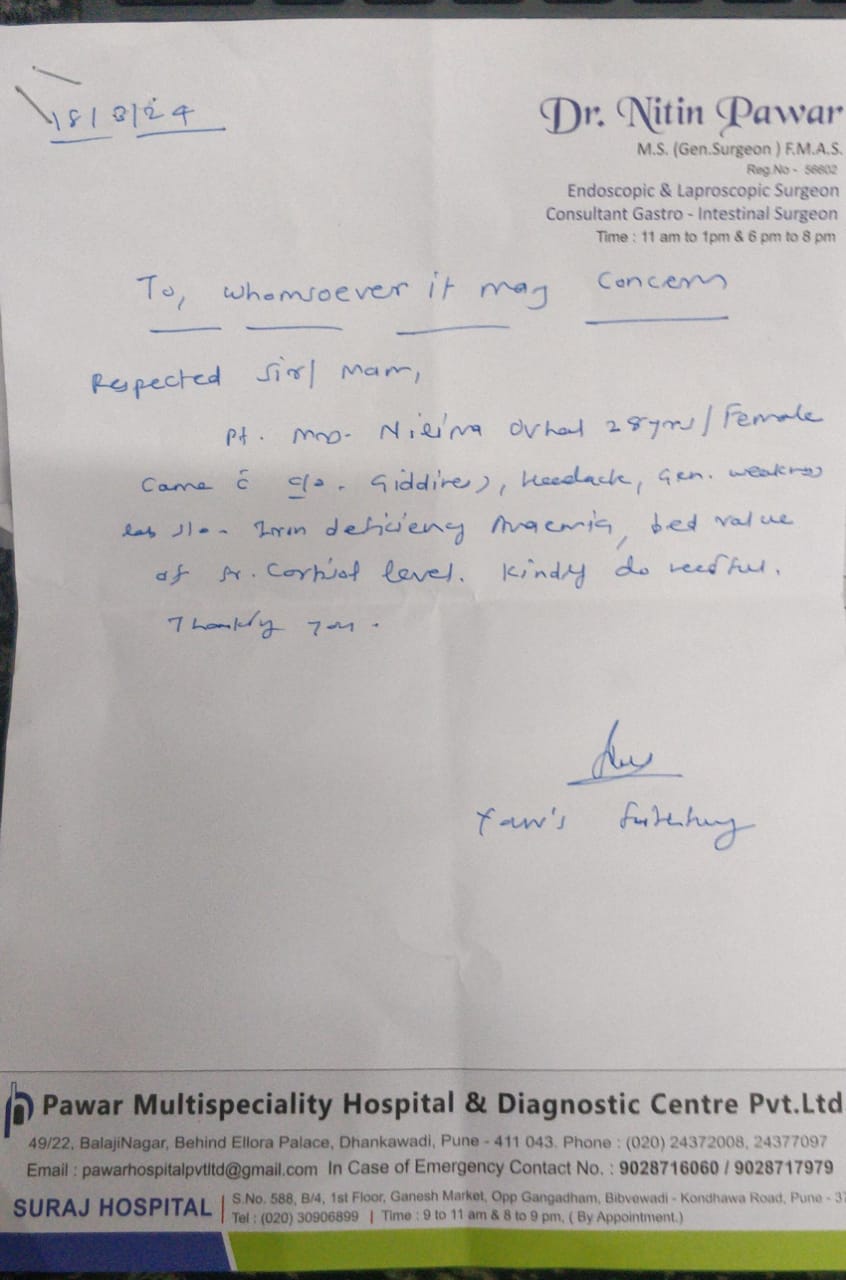 18/3/24
Dr. Nitin Pawar
M.S. (Gen.Surgeon ) F.M.A.S.
Reg.No - 56602
Endoscopic & Laproscopic Surgeon
Consultant Gastro - Intestinal Surgeon
Time : 11 am to 1pm & 6 pm to 8 pm
To, whomsoever it may concern
Respected Sir/ Mam,
Pt. Mrs. Nilima Ovhal 28yrs/Female
Came c̄ c/o. Giddiness, Headack, Gen. weakness
Iron deficiency Anaemia, value
of Sr. Cortisol level. Kindly do needful.
Thanking you.
Your's
Pawar Multispeciality Hospital & Diagnostic Centre Pvt.Ltd
49/22, BalajiNagar, Behind Ellora Palace, Dhankawadi, Pune - 411 043. Phone : (020) 24372008, 24377097
Email : pawarhospitalpvtltd@gmail.com In Case of Emergency Contact No. : 9028716060 / 9028717979
SURAJ HOSPITAL
S.No. 588, B/4, 1st Floor, Ganesh Market, Opp Gangadham, Bibvewadi - Kondhawa Road, Pune - 37
Tel : (020) 30906899 | Time : 9 to 11 am & 8 to 9 pm, ( By Appointment.)